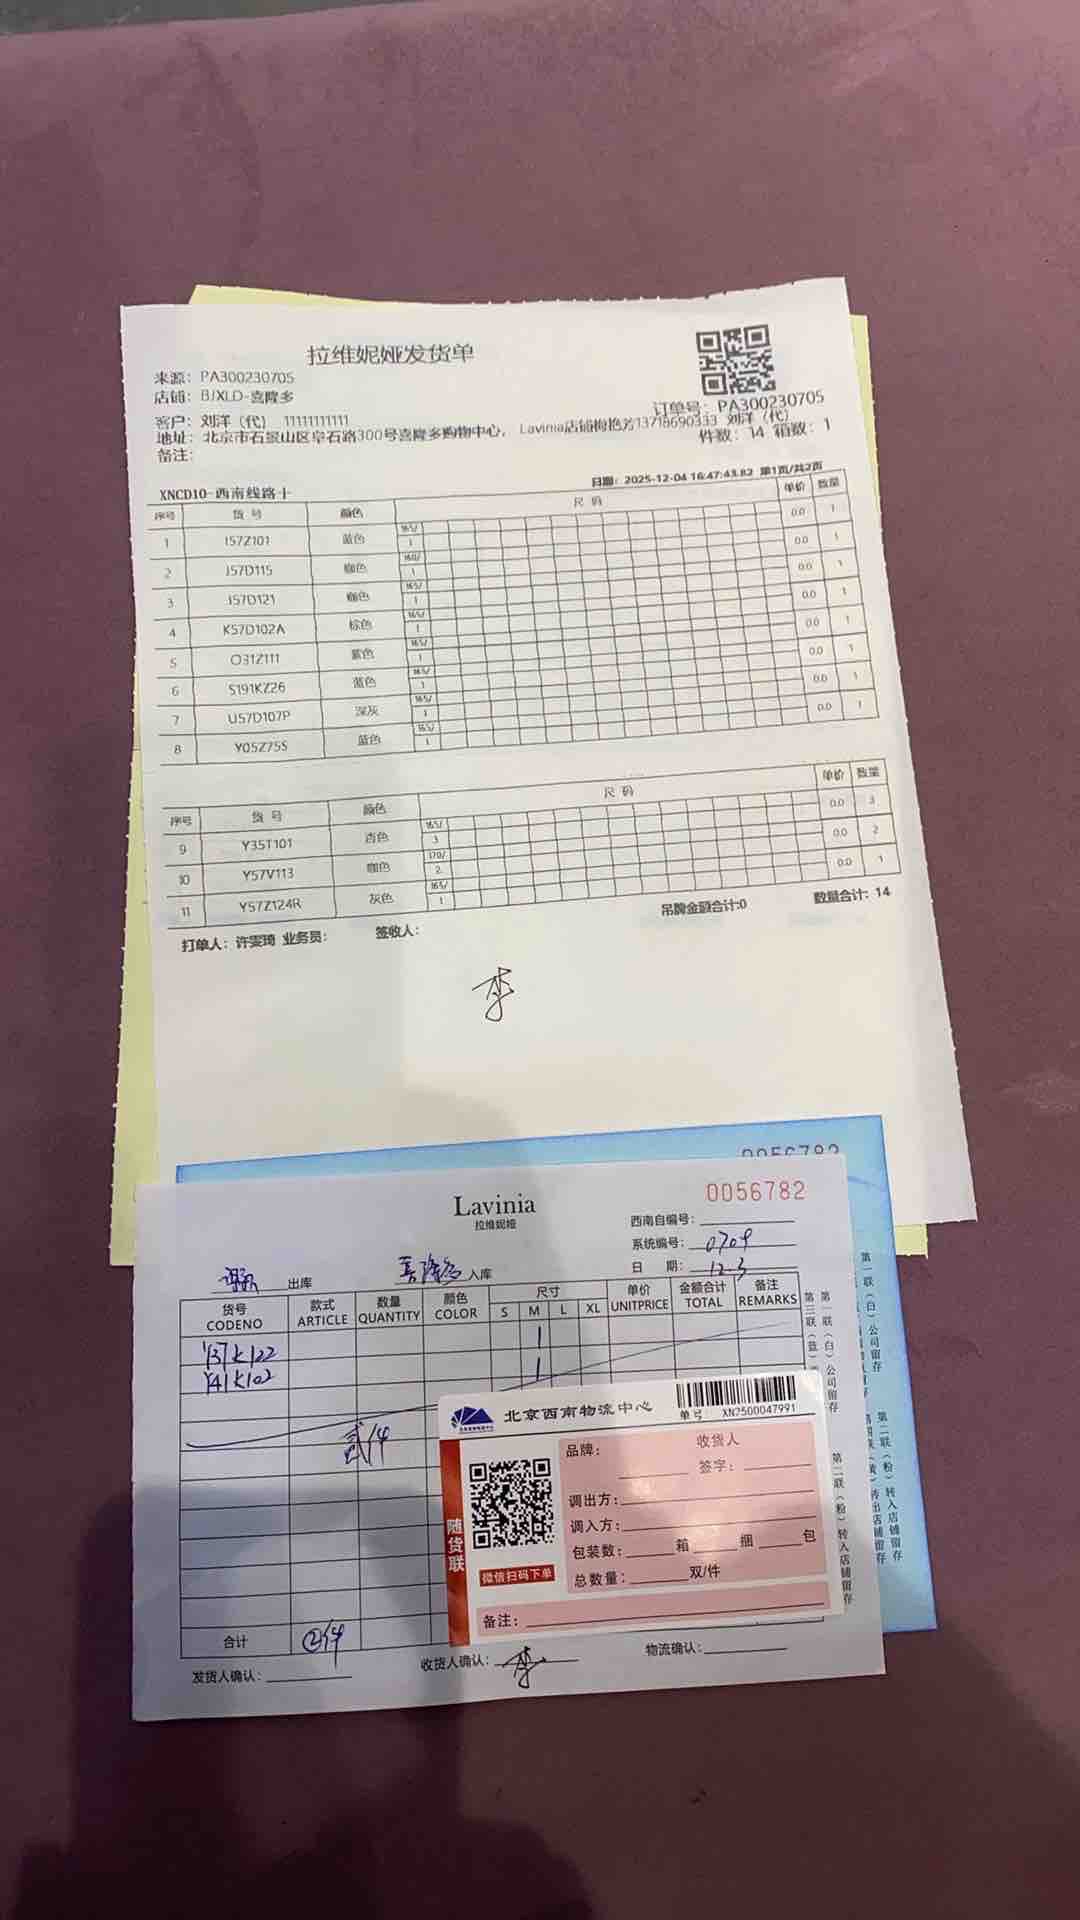 拉维妮娅发货单
来源：PA300230705
店铺：BJXLD-喜隆多
订单号：PA300230705
客户：刘洋（代） 11111111111
地址：北京市石景山区阜石路300号喜隆多购物中心， Lavinia店铺梅艳芳13718690333 刘洋（代）
件数：14 箱数：1
备注：
日期：2025-12-04 16:47:43.82 第1页/共2页
XNCD10-西南线路十
序号 货 号 颜色 尺 码 单价 数量
165/
1 I57Z101 蓝色 1 0.0 1
160/
2 J57D115 咖色 1 0.0 1
165/
3 J57D121 咖色 1 0.0 1
165/
4 K57D102A 棕色 1 0.0 1
165/
5 O31Z111 紫色 1 0.0 1
165/
6 S191KZ26 蓝色 1 0.0 1
165/
7 U57D107P 深灰 1 0.0 1
165/
8 Y05Z75S 蓝色 1 0.0 1
序号 货 号 颜色 尺 码 单价 数量
165/
9 Y35T101 杏色 3 0.0 3
170/
10 Y57V113 咖色 2 0.0 2
165/
11 Y57Z124R 灰色 1 0.0 1
打单人：许雯琦 业务员： 签收人： 吊牌金额合计:0 数量合计：14
李
0056782
0056782
Lavinia
拉维妮娅
西南自编号：
系统编号：0704
日 期：12.3
出库 喜隆多 入库
货号 CODENO 款式 ARTICLE 数量 QUANTITY 颜色 COLOR 尺寸 S M L XL 单价 UNITPRICE 金额合计 TOTAL 备注 REMARKS
Y37K122 1
Y41K102 1
贰件
合计 ②件
发货人确认： 收货人确认：李 物流确认：
第一联（白）公司留存
第二联（粉）转入店铺留存
第三联（蓝）
第一联（白）公司留存
第二联（粉）转入店铺留存
北京西南物流中心
单号 XN2500047991
随货联
微信扫码下单
品牌： 收货人
签字：
调出方：
调入方：
包装数： 箱 捆 包
总数量： 双/件
备注：